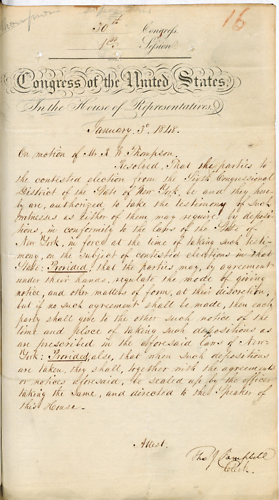 16
Thompson
30th Congress
1st Session
Congress of the United States
In the House of Representatives,
January 3d 1848.
On motion of Mr R W Thompson,
Resolved, That the parties to
the contested election from the Sixth Congressional
District of the State of New York, be and they here-
by are, authorized to take the testimony of such
witnesses as either of them may require by deposi-
tions, in conformity to the laws of the State of
New York, in force at the time of taking such testi-
mony, on the subject of contested elections in that
State: Provided, that the parties may, by agreement
under their hands, regulate the mode of giving
notice, and other matters of form, at their discretion,
but if no such agreement shall be made, then each
party shall give to the other such notice of the
time and place of taking such depositions as
are prescribed in the aforesaid laws of New-
York: Provided, also, that when such depositions
are taken, they shall, together with the agreements
or notices aforesaid, be sealed up by the officer
taking the same, and directed to the Speaker of
this House.
Attest.
Tho J Campbell
Clerk.